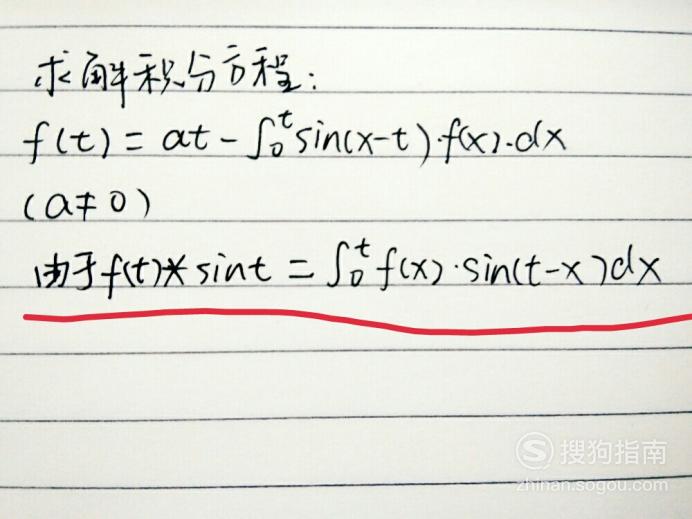 求解积分方程:
f(t) = at - ∫₀ᵗ sin(x-t)·f(x)·dx
(a≠0)
由于f(t)*sint = ∫₀ᵗ f(x)·sin(t-x)dx
S 搜狗指南
zhinan.sogou.com